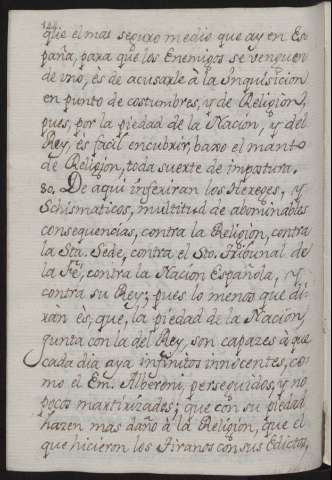 144.
que el mas seguro medio que ay en Es
paña, para que los Enemigos se venguen
de uno, ès de acusarle à la Inquisicion
en punto de costumbres, y de Religion,
pues, por la piedad de la Nacion, y del
Rey, es facil encubrir, baxo el manto
de Religion, toda suerte de impostura.
80. De aqui inferiran los Hereges, y
Schismaticos, multitud de abominables
consequencias, contra la Religion, contra
la Sta. Sede, contra el Sto. Tribunal de
la Fè, contra la Nacion Española, y
contra su Rey; pues lo menos que di-
ràn ès, que, la piedad de la Nacion,
junta con la del Rey, son capazes à que
cada dia aya infinitos innocentes, co
mo el Em. Alberoni, perseguidos, y no
pocos martirizados; que con su piedad
hazen mas daño à la Religion, que el
que hicieron los Tiranos con sus Edictos,